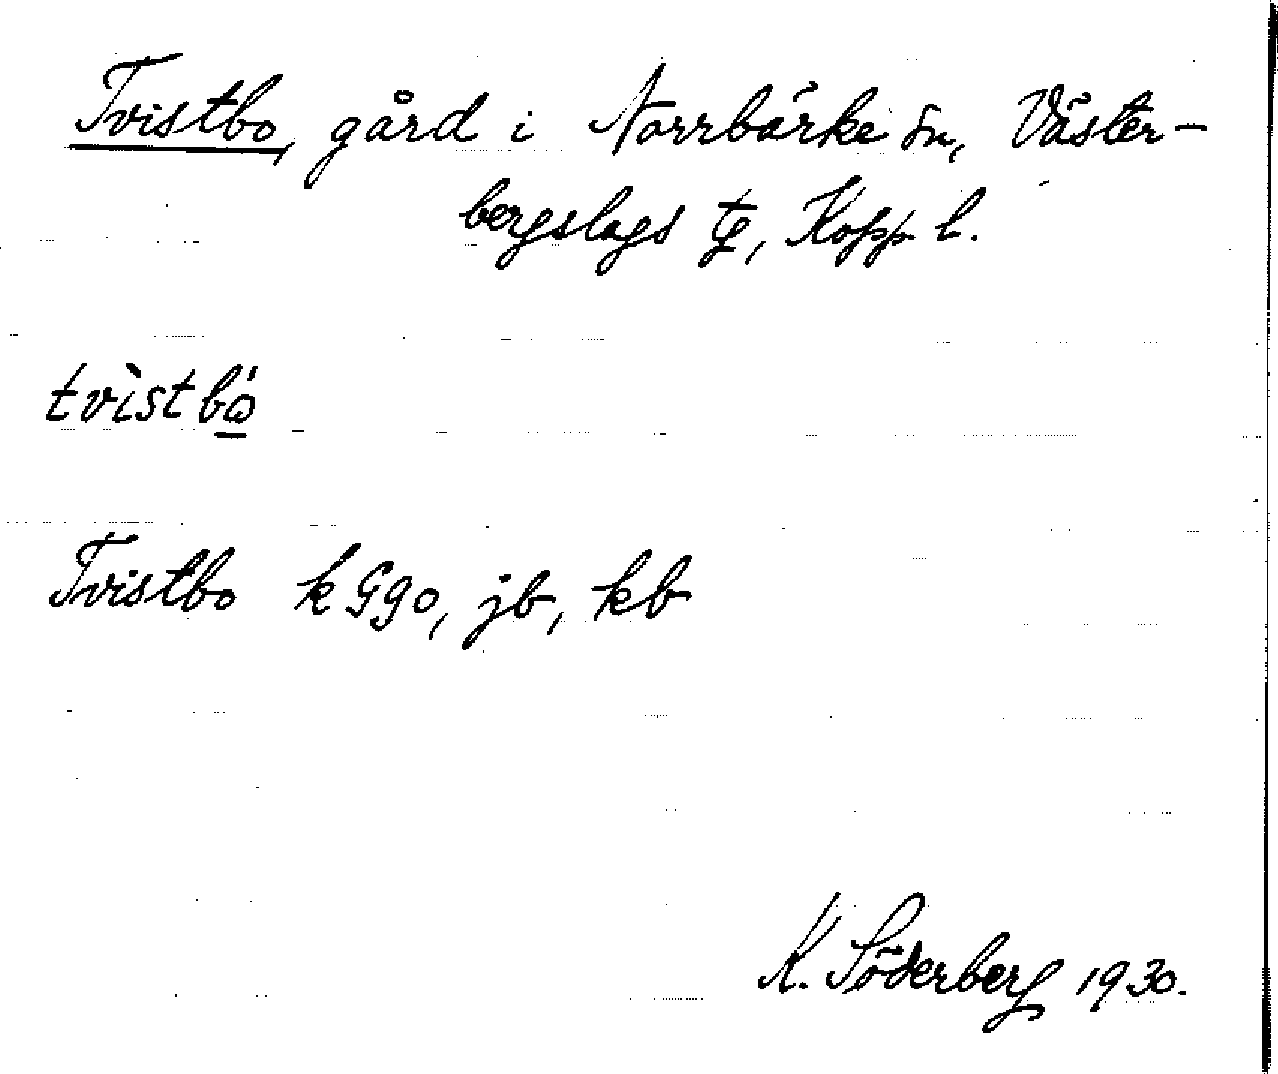 Tvistbo, gård i Norrbärke sn, Väster-
bergslags tg, Kopp l.
tvìstbó̲
Tvistbo k Ggo, jb, kb
K. Söderberg 1930.